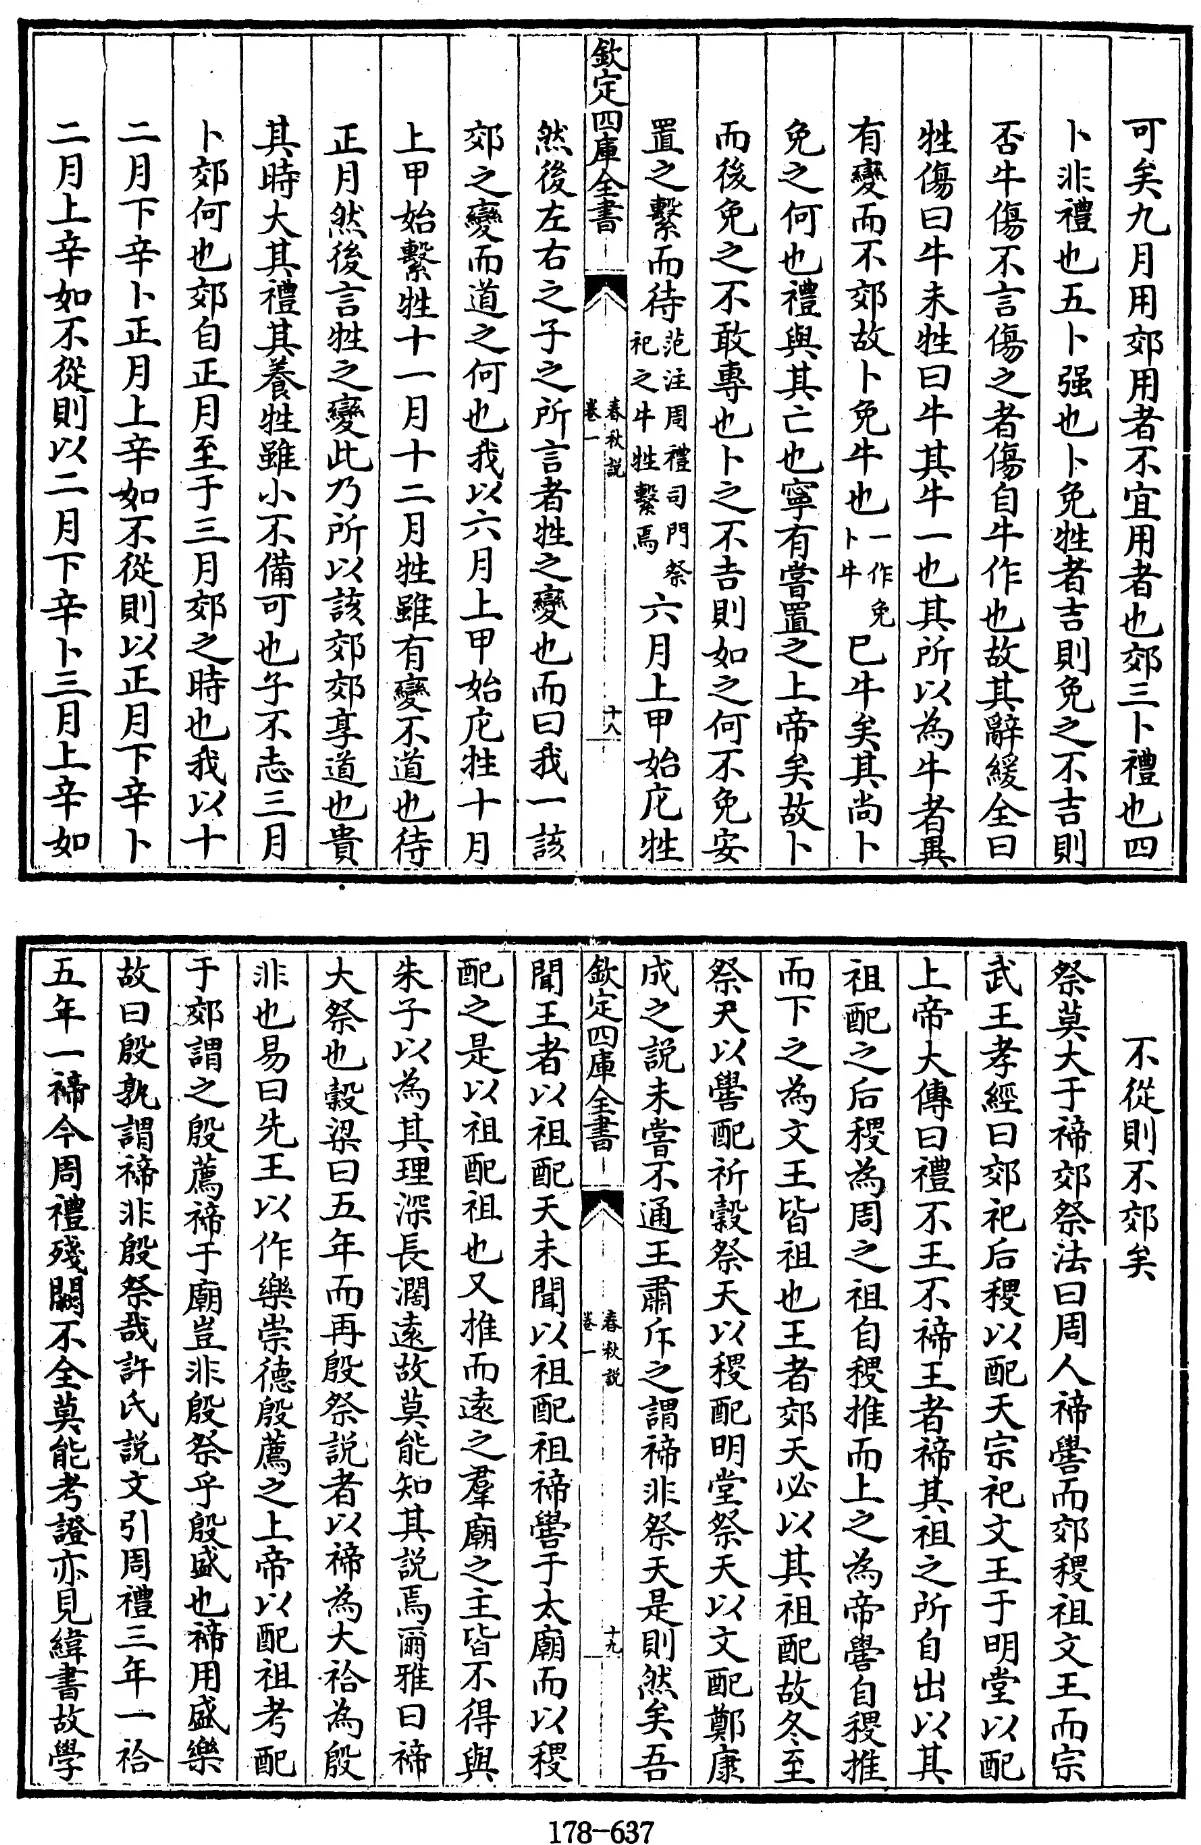 可矣九月用郊用者不宜用者也郊三卜禮也四
卜非禮也五卜强也卜免牲者吉則免之不吉則
否牛傷不言傷之者傷自牛作也故其辭緩全曰
牲傷曰牛未牲曰牛其牛一也其所以為牛者異
有變而不郊故卜免牛也一作免卜牛已牛矣其尚卜
免之何也禮與其亡也寧有嘗置之上帝矣故卜
而後免之不敢專也卜之不吉則如之何不免安
置之繫而待范注周禮司門祭祀之牛牲繫焉六月上甲始庀牲
欽定四庫全書
春秋説
卷一
十八
然後左右之子之所言者牲之變也而曰我一該
郊之變而道之何也我以六月上甲始庀牲十月
上甲始繫牲十一月十二月牲雖有變不道也待
正月然後言牲之變此乃所以該郊郊享道也貴
其時大其禮其養牲雖小不備可也子不志三月
卜郊何也郊自正月至于三月郊之時也我以十
二月下辛卜正月上辛如不從則以正月下辛卜
二月上辛如不從則以二月下辛卜三月上辛如
不從則不郊矣
祭莫大于禘郊祭法曰周人禘嚳而郊稷祖文王而宗
武王孝經曰郊祀后稷以配天宗祀文王于明堂以配
上帝大傳曰禮不王不禘王者禘其祖之所自出以其
祖配之后稷為周之祖自稷推而上之為帝嚳自稷推
而下之為文王皆祖也王者郊天必以其祖配故冬至
祭天以嚳配祈穀祭天以稷配明堂祭天以文配鄭康
成之説未嘗不通王肅斥之謂禘非祭天是則然矣吾
欽定四庫全書
春秋説
卷一
十九
聞王者以祖配天未聞以祖配祖禘嚳于太廟而以稷
配之是以祖配祖也又推而遠之羣廟之主皆不得與
朱子以為其理深長濶遠故莫能知其説焉爾雅曰禘
大祭也穀梁曰五年而再殷祭説者以禘為大祫為殷
非也易曰先王以作樂崇德殷薦之上帝以配祖考配
于郊謂之殷薦禘于廟豈非殷祭乎殷盛也禘用盛樂
故曰殷孰謂禘非殷祭哉許氏説文引周禮三年一祫
五年一禘今周禮殘闕不全莫能考證亦見緯書故學
178-637